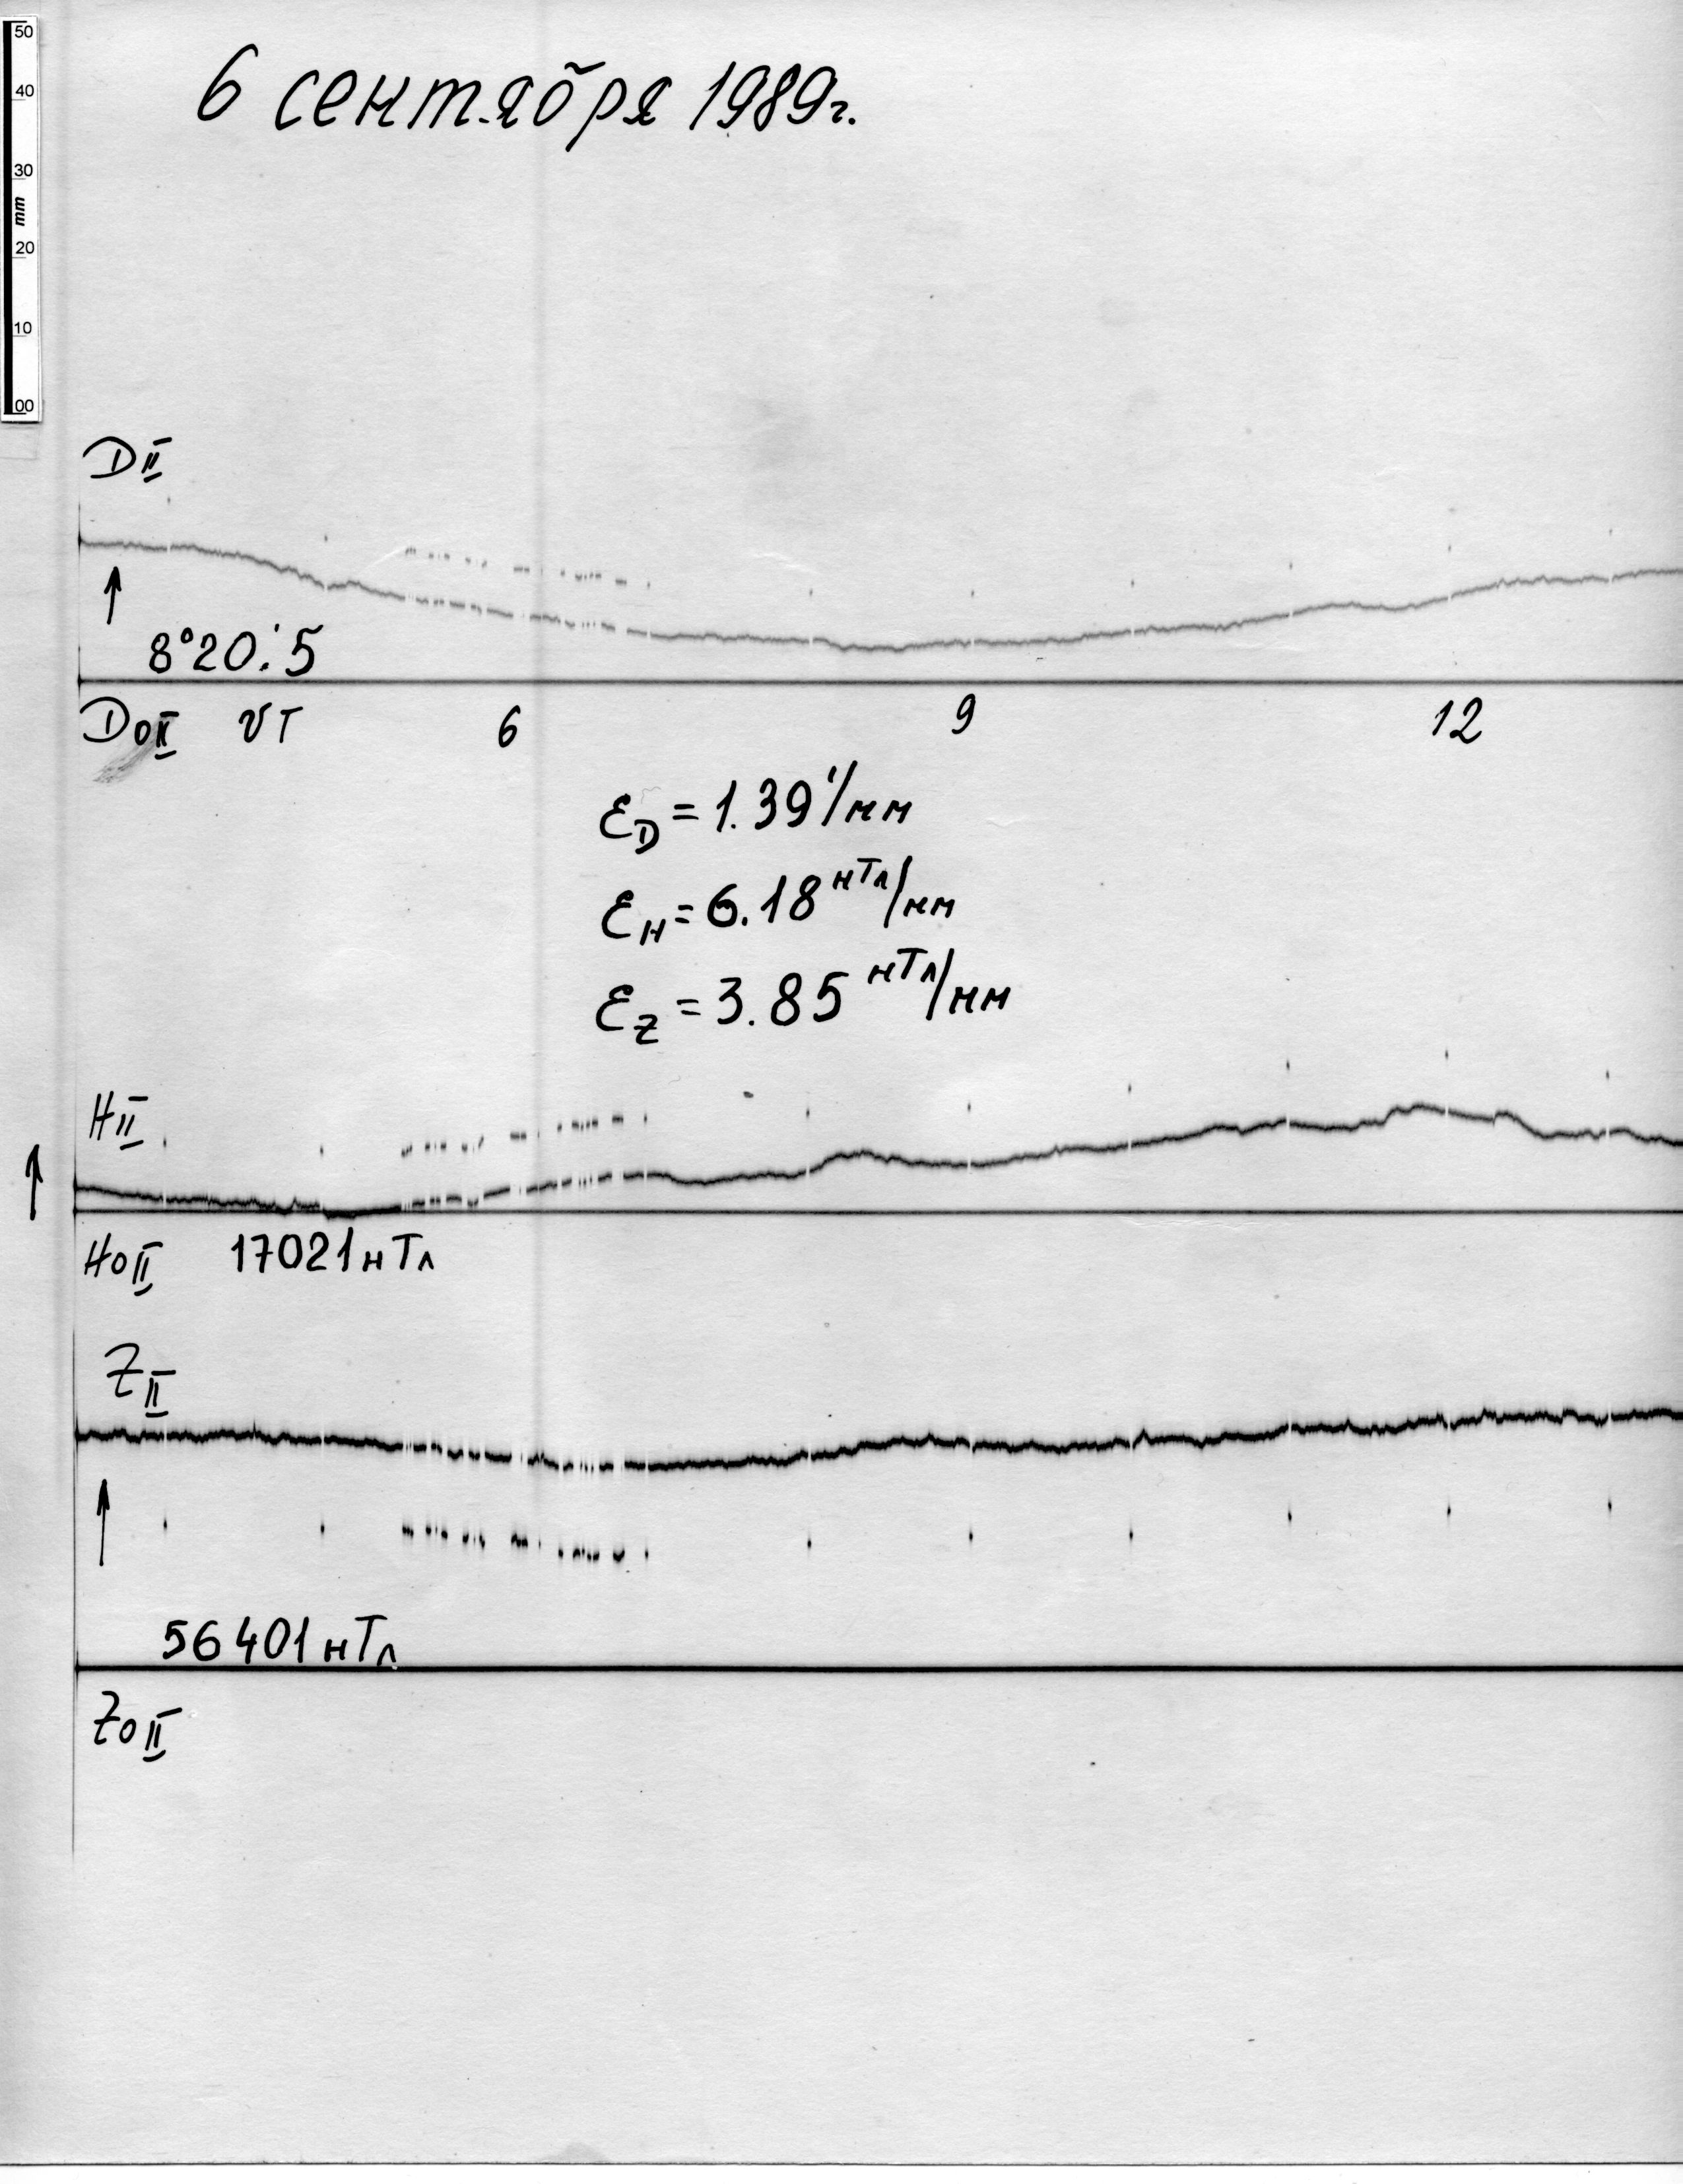 50
40
30
mm
20
10
00
6 сентября 1989г.
DII
8°20.'5
D0II UT 6 9 12
ƐD = 1.39'/мм
ƐH = 6.18 нТл/мм
ƐZ = 3.85 нТл/мм
HII
H0II 17021нТл
ZII
56401нТл
Z0II